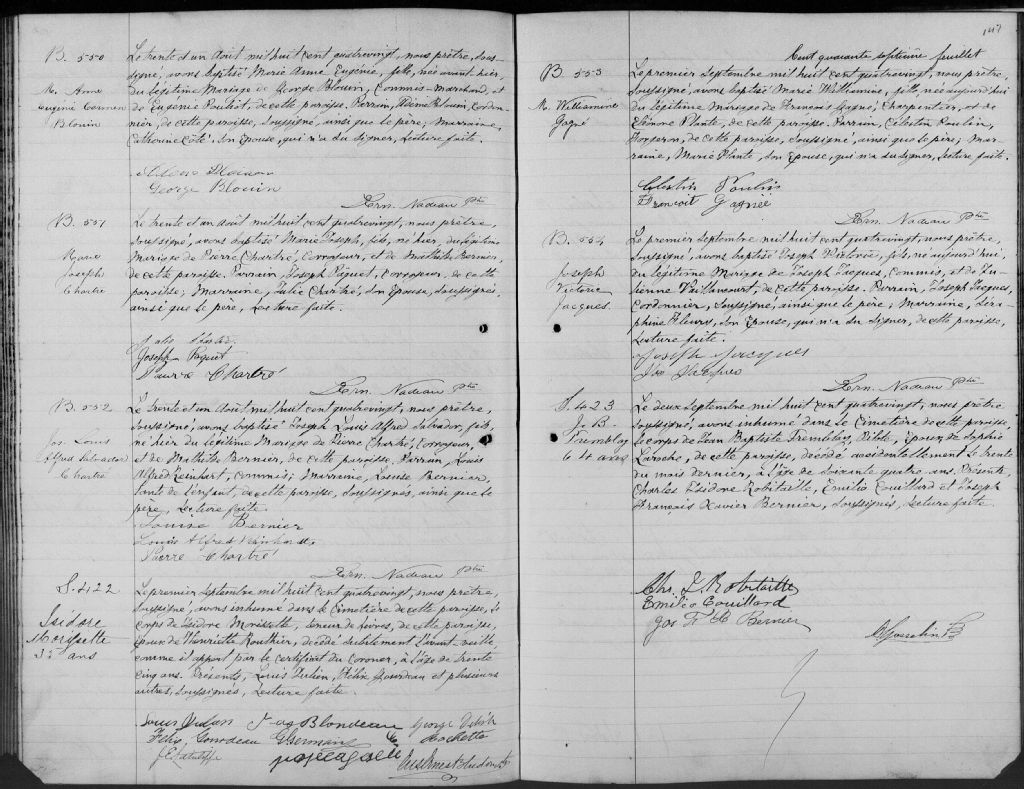 B. 550
M. Anne
Eugénie
Blouin
Le trente et un Août mil huit cent quatrevingt, nous prêtre, sous
signé, avons baptisé Marie Anne Eugénie, fille, née avant hier,
du légitime Mariage de George Blouin, Commis-Marchand, et
de Eugénie Pouliot, de cette paroisse. Parrain, Blouin, Cordon-
nier, de cette paroisse, soussigné, ainsi que le père, Marraine,
Catherine Côté, son Epouse, qui n'a du signer, Lecture faite.
Blouin
George Blouin
Nadeau Ptre
B. 551
Marie
Joseph
Chartré
Le trente et un Août mil huit cent quatrevingt, nous prêtre,
soussigné, avons baptisé Marie Joseph, né hier, du légitime
Mariage de Pierre Chartré, Corroyeur, et de Mathilde Bernier,
de cette paroisse. Parrain, Joseph Paquet, Corroyeur, de cette
paroisse; Marraine, Julie Chartré, son Epouse, soussignés,
ainsi que le père, Lecture faite.
Joseph Paquet
Pierre Chartré
Nadeau Ptre
B. 552
Jos. Louis
Alfred Salvador
Chartré
Le trente et un Août mil huit cent quatrevingt, nous prêtre,
soussigné, avons baptisé Joseph Louis Alfred Salvador, fils,
né hier du légitime Mariage de Pierre Chartré, Corroyeur,
et de Mathilde Bernier, de cette paroisse. Parrain, Louis
Alfred Commis; Marraine, Louise Bernier,
tante de l'enfant, de cette paroisse, soussignés, ainsi que le
père, Lecture faite.
Louise Bernier
Louis Alfred
Pierre Chartré
Nadeau Ptre
S. 422
Isidore
Morissette
35 ans
Le premier Septembre mil huit cent quatrevingt, nous prêtre,
soussigné, avons inhumé dans le Cimetière de cette paroisse, le
corps de Isidore Morissette, de cette paroisse,
époux de Henriette Routhier, décédé subitement l'avant-veille,
comme il appert par le certificat du Coroner, à l'âge de trente
cinq ans. Présents, Louis Julien, Félix Gourdeau et plusieurs
autres, soussignés, Lecture faite.
Louis Julien Blondeau George
Félix Gourdeau G. Germain Rochette
147
Cent quarante septième feuillet
B. 553
M. Wilhelmine
Gagné
Le premier Septembre mil huit cent quatrevingt, nous prêtre,
soussigné, avons baptisé Marie Wilhelmine, fille, née aujourd'hui
du légitime Mariage de François Gagné, Charpentier, et de
Eléonore Plante, de cette paroisse. Parrain, Célestin Poulin,
Forgeron, de cette paroisse, soussigné, ainsi que le père; Mar-
raine, Marie Plante, son Epouse, qui n'a du signer, Lecture faite.
Celestin Poulin
François Gagné
Nadeau Ptre
B. 554
Joseph
Victorie
Jacques
Le premier Septembre mil huit cent quatrevingt, nous prêtre,
soussigné, avons baptisé Joseph fils, né aujourd'hui,
du légitime Mariage de Joseph Jacques, Commis, et de
Vaillancourt, de cette paroisse. Parrain, Joseph Jacques,
Cordonnier, soussigné, ainsi que le père; Marraine, Séra-
phine Fleurus, son Epouse, qui n'a du signer, de cette paroisse,
Lecture faite.
Joseph Jacques
Jos Jacques
Nadeau Ptre
S. 423
J. B.
Tremblay
64 ans
Le deux Septembre mil huit cent quatrevingt, nous prêtre
soussigné, avons inhumé dans le Cimetière de cette paroisse,
le corps de Jean Baptiste Tremblay, Pilote, époux de Sophie
Laroche, de cette paroisse, décédé accidentellement le trente
du mois dernier, à l'âge de soixante quatre ans. Présents,
Charles Isidore Robitaille, Emilio Couillard et Joseph
François Xavier Bernier, soussignés, Lecture faite.
Chs. I. Robitaille
Emilio Couillard
Jos F X Bernier
Gosselin